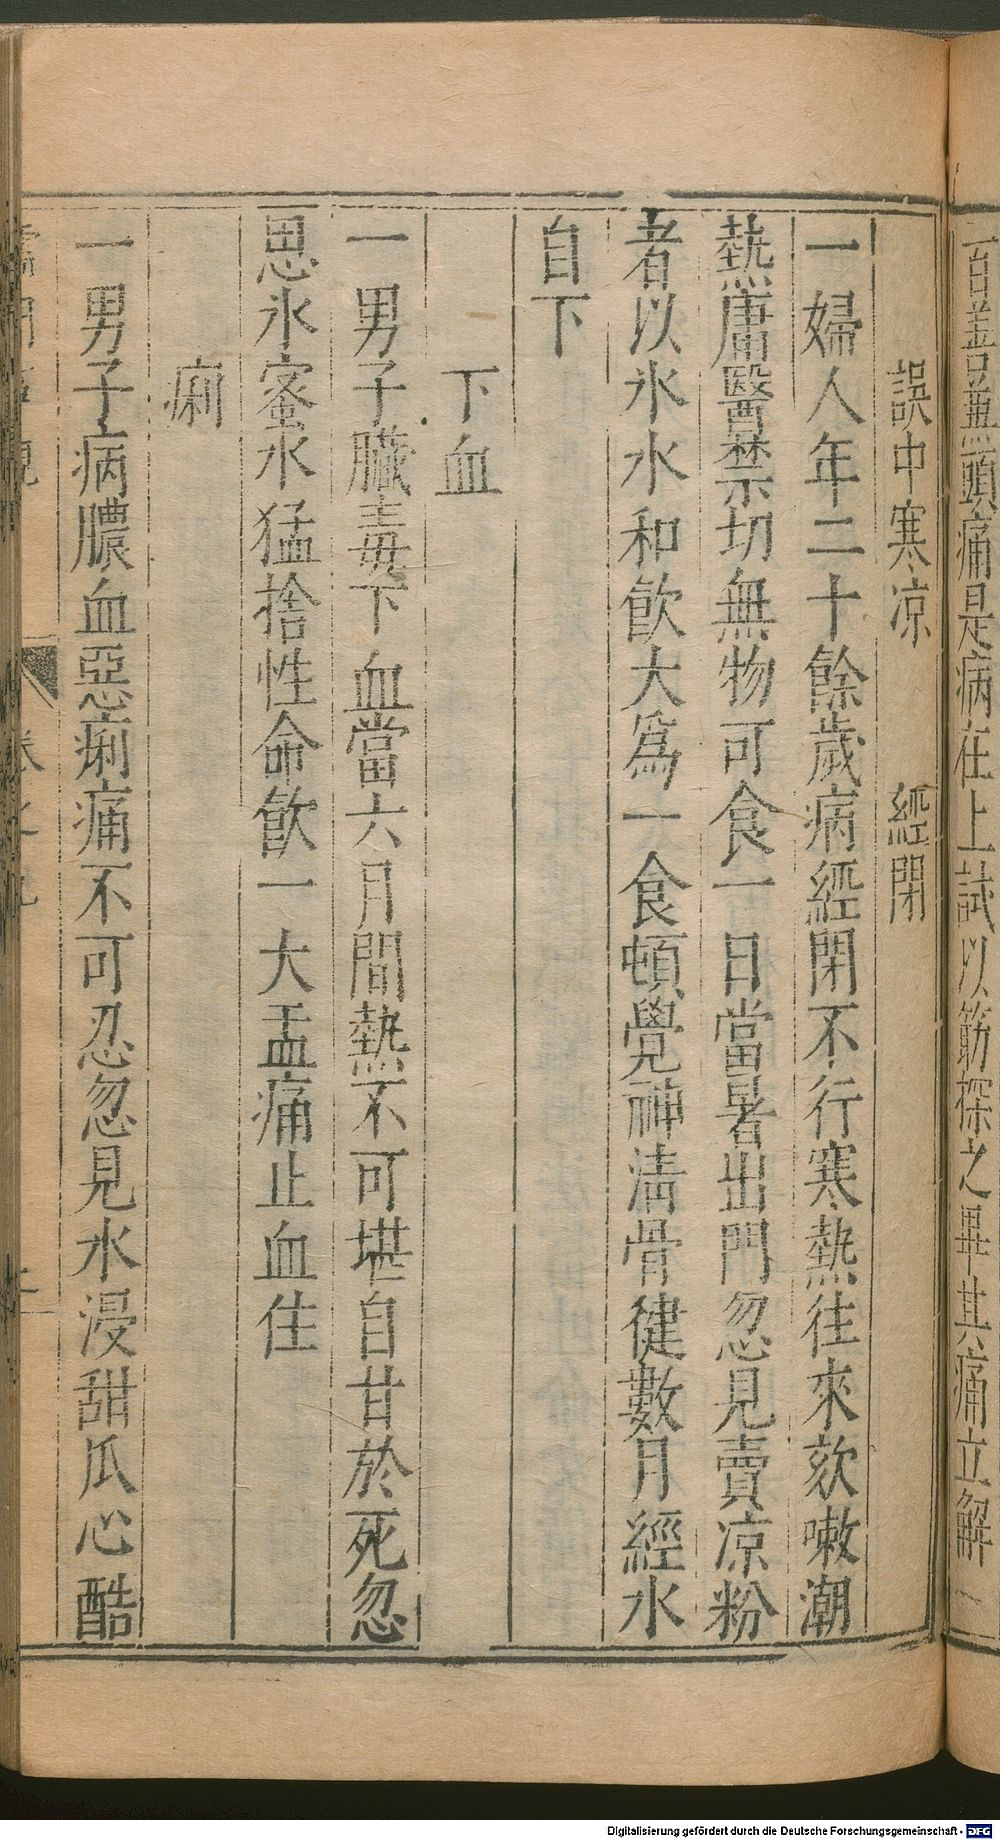 誤中寒凉　經閉
一婦人年二十餘歲病經閉不行寒熱往來欬嗽潮
熱庸醫禁切無物可食一日當暑出門忽見賣凉粉
者以氷水和飲大爲一食頓覺神淸骨健數月經水
自下
下血
一男子臟毒下血當六月間熱不可堪自甘於死忽
思氷蜜水猛捨性命飲一大盂痛止血住
痢
一男子病膿血惡痢痛不可忍忽見水浸甜瓜心酷
頭痛是病在上試以筯探之畢其痛立解
Digitalisierung gefördert durch die Deutsche Forschungsgemeinschaft - DFG